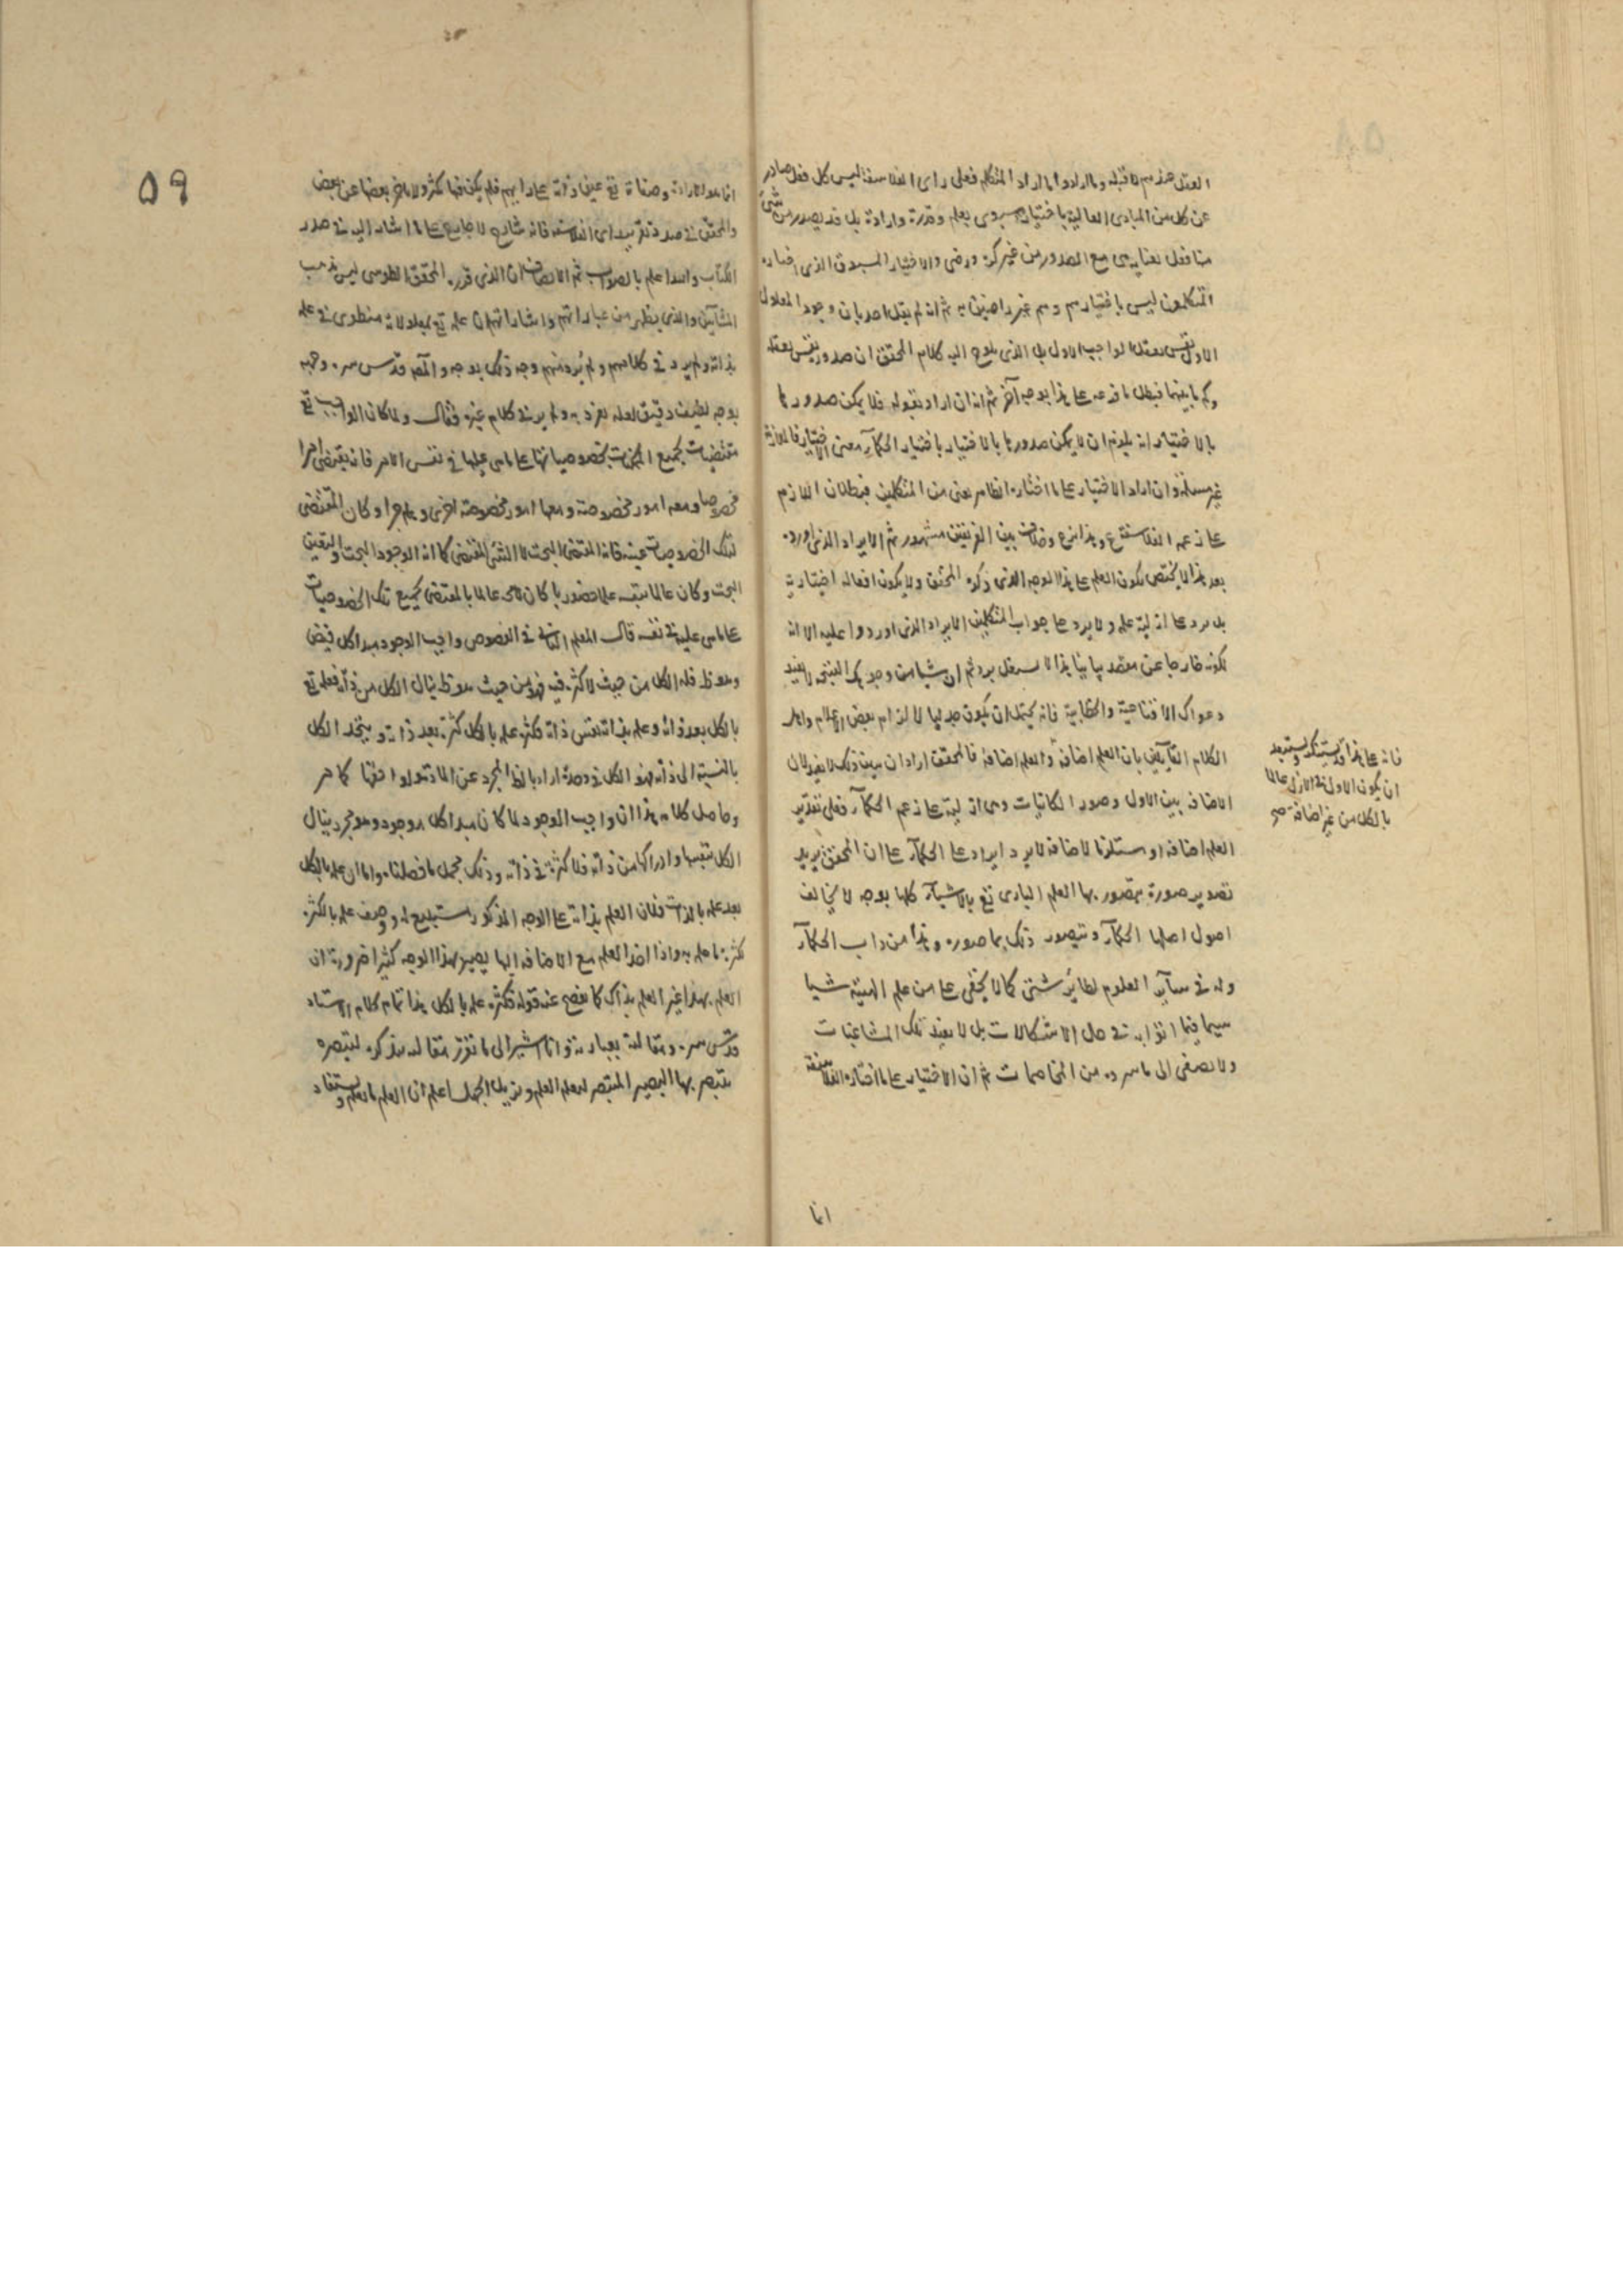 العقل عندهم لا قبله وما ارادوا ما اراد المتكلم فعلى راى الفلاسفة ليس كل فعل صادر
عن كل من المبادى العالية باختياره بمعنى بعلم وقدرة وارادة بل قد يصدر من شئ
منا فعل مع الصدور من غير كره ورضى والاختيار المسبوق الذى اختاره
المتكلمون ليس باختيارهم وهم غير راضين به ثم انه لم يقل احد بان وجود المعلول
الاول نفس تعقل الواجب الاول بل الذى يلوح اليه كلام المحقق ان صدوره نفس تعقله
وكم ما بينهما فبطل ما فرعه على هذا بوجه آخر ثم انه ان اراد بقوله فلا يمكن صدورها
بالاختيار انه يلزم ان لا يمكن صدورها بالاختيار باختيار الحكماء معنى الاختيار فالملازمة
غير مسلمة وان اراد الاختيار على ما اختاره الظاهر يعنى من المتكلمين فبطلان اللازم
على زعم الفلاسفة وهذا نزع وخلاف بين الفريقين مشهور ثم الايراد الذى اورده
بعد هذا لا يختص بكون العلم على هذا الوجه الذى ذكره المحقق ولا يكون افعاله اختيارية
بل يرد على ازلية علمه ولا يرد على جواب المتكلمين الايراد الذى اوردوا عليه الا انه
لكونه خارجا عن ثم ان شيا من وجوهك لا يفيد
دعواك الاقناعية والخطابية فانه يحتمل ان يكون جدليا لالزام بعض الاعلام واهل
الكلام القائلين بان العلم اضافة والعلم اضافة فالمحقق اراد ان يبين ذلك لا يفيد لان
الاضافة بين الاول وصور الكائنات وهى ازلية على زعم الحكماء فعلى تقدير
العلم اضافة او مستلزما لاضافة لا يرد ايراد على الحكماء على ان المحقق يريد
تصوير صورة يتصور بها العلم البارى تع بالاشياء كلها بوجه لا يخالف
اصول اصلها الحكماء وتيصور ذلك بما صوره وهذا من داب الحكماء
وله فى سائر العلوم نظائر شتى كما لا يخفى على من علم الهيئة شيا
سيما فيما اتوا به فى حل الاشكالات بل لا يفيد تلك المشاغبات
ولا يصغى الى ما سرده من المخاصمات ثم ان الاختيار على ما اختاره الفلاسفة
انما
فانه على هذا قد يستنكر ويستبعد
ان يكون الاول فى الازل عالما
بالكل من غير اضافة صح
٥٩
انما هو الارادة وصفاته تع عين ذاته على رايهم فلم يكن فيها تكثر ولا تاخر بعضها عن بعض
والمحقق فى صدد تقريب راى الفلاسفة فانه شارح لا جارح على ما اشار اليه فى صدر
الكتاب والله اعلم بالصواب ثم الانصاف ان الذى قرره المحقق الطوسى ليس مذهب
المشائين والذى يظهر من عباراتهم واشاراتهم ان علمه تع بمعلولاته منطوى فى علمه
بذاته ولم يرد فى كلامهم ولم يرد منهم وجه ذلك بوجه والمص قدس سره وجهه
بوجه لطيف دقيق لعله تفرد به ولم ير فى كلام غيره فقال ولما كان الواجب تع
مقتضيا لجميع الممكنات بخصوصياتها على ما هى عليها فى نفس الامر فانه يقتضى امرا
مخصوصا ومعه امور مخصوصة ومعها امور مخصوصة اخرى وهلم جرا وكان المقتضى
لتلك الخصوصيات عينه فانه المقتضى البحت لا الشئ المقتضى كما انه الوجود البحت والتعين
البحت وكان عالما بنفسه علما حضوريا كان لا محالة عالما بالمقتضى لجميع تلك الخصوصيات
على ما هى عليه فى نفسه قال المعلم الثانى فى الفصوص واجب الوجود مبدا كل فيض
وهو ظ فله الكل من حيث لا كثرة فيه فهو من حيث هو ظ ينال الكل من ذاته فعلمه تع
بالكل بعد ذاته وعلمه بذاته نفس ذاته فكثرة علمه بالكل كثرة بعد ذاته ويتحد الكل
بالنسبة الى ذاته فهو الكل فى وحدة اراد بالظ المجرد عن المادة ولواحقها كما مر
وحاصل كلامه هذا ان واجب الوجود لما كان مبدا كل موجود وهو مجرد ينال
الكل بنفسها وادراكها من ذاته فلا كثرة فى ذاته وذلك مجمل ما فصلناه واما ان علمه بالكل
بعد علمه بالذات فلان العلم بذاته على الوجه المذكور مستتبع له ووصف علمه بالكثرة
كثرة ما علمه به واذا اخذ العلم مع الاضافة اليها يصير بهذا الوجه كثيرا ضرورة ان
العلم بهذا غير العلم بذاك كما يفصح عنه قوله فكثرة علمه بالكل هذا تمام كلام الاستاد
قدس سره ومقالته بعبارته وانا اشير الى ما تقرر مقاله بذكره لتبصرة
يتبصر بها البصير المتبصر لتعلم العلم وتزيل الجهل اعلم ان العلم ما يعلم ويستفاد